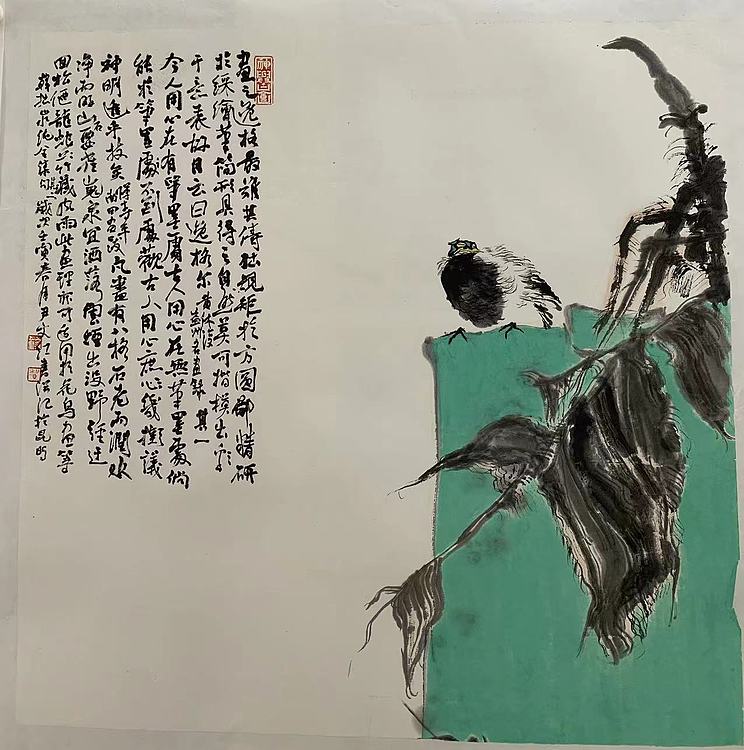 畫之逸格最難其儔拙規矩於方圓鄙精研
於綵繪筆簡形具得之自然莫可楷模出於
于意表故目之曰逸格爾 黃休復益州名畫錄 其一
今人用心在有筆墨處古人用心在無筆墨處倘
能於筆墨處不到處觀古人用心庶幾擬議
神明進乎技矣 惲壽平南田畫跋 凡畫有八格石老而潤水
淨而明山要崔嵬泉宜洒落雲煙出沒野徑迂
回松偃龍蛇竹藏風雨此畫理亦可適用於花鳥畫等
純全集句 歲次壬寅春月尹 紅書 於昆明